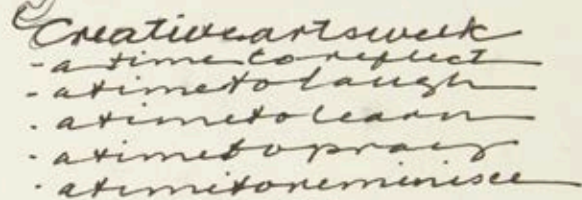 Creative arts week
- a time to reflect
- a time to laugh
. a time to learn
. a time to pray
. a time to reminisce